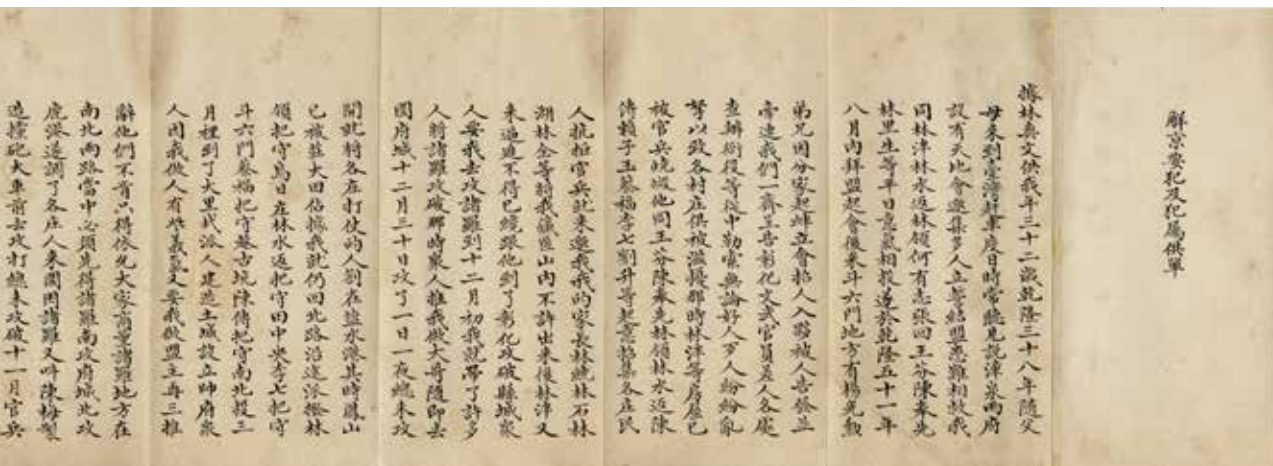 解京要犯及犯屬供單
據林爽文供我年三十二歲乾隆三十八年隨父
母來到臺灣赶車度日時常聽見說漳泉兩府
設有天地會邀集多人立誓結盟患難相救我
同林泮林水返林領何有志張回王芬陳奉先
林里生等平日意氣相投遂於乾隆五十一年
八月內拜盟起會後來斗六門地方有楊光勳
弟兄因分家起衅立會招人入夥被人告發並
牽連我們一齊呈告彰化文武官員差人各處
查辦衙役等從中勒索無論好人歹人紛紛亂
拏以致各村庄俱被滋擾那時林泮等房屋已
被官兵燒燬他同王芬陳奉先林領林水返陳
傳賴子玉蔡福李七劉升等起意招集各庄民
人抗拒官兵就來邀我我的家長林繞林石林
湖林全等將我藏匿山內不許出來後林泮又
來逼迫不得已纔跟他到了彰化攻破縣城眾
人要我去攻諸羅到十二月初我就帶了許多
人將諸羅攻破那時眾人推我做大哥隨即去
圍府城十二月三十日攻了一日一夜總未攻
開就將各庄打仗的人劄在鹽水港其時鳳山
已被莊大田佔據我就仍回北路沿途派撥林
領把守笨日庄林水返把守田中央李七把守
斗六門蔡福把守菴古坑陳傳把守南北投三
月裡到了大里杙派人建造土城設立帥府眾
人因我做人有些義氣又要我做盟主再三推
辭他們不肯只得依允大家商量諸羅地方在
南北兩路當中必須先得諸羅南攻府城北攻
鹿港遂調了各庄人來圍困諸羅又叫陳梅製
造擋砲大車前去攻打總未攻破十一月官兵